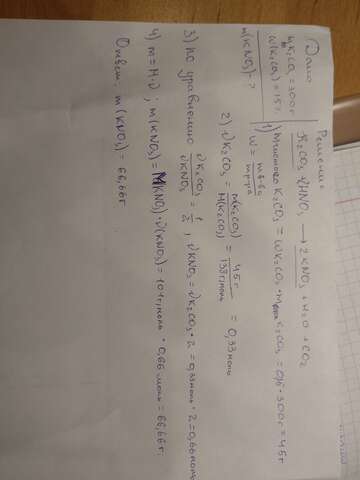 Дано
m K₂CO₃ = 300г
W(K₂CO₃) = 15%
m(KNO₃) - ?
Решение:
K₂CO₃ + 2HNO₃ → 2KNO₃ + H₂O + CO₂
1) m чистого K₂CO₃ = W K₂CO₃ * m K₂CO₃ = 0,15 * 300г = 45г
W = m в-ва / m р-ра
2) ν K₂CO₃ = m(K₂CO₃) / M(K₂CO₃) = 45г / 138г/моль = 0,33 моль
3) по уравнению ν K₂CO₃ / ν KNO₃ = 1/2, ν KNO₃ = ν K₂CO₃ * 2 = 0,33моль * 2 = 0,66 моль
4) m = M·ν; m(KNO₃) = M(KNO₃)·ν(KNO₃) = 101г/моль * 0,66 моль = 66,66г.
Ответ: m(KNO₃) = 66,66г